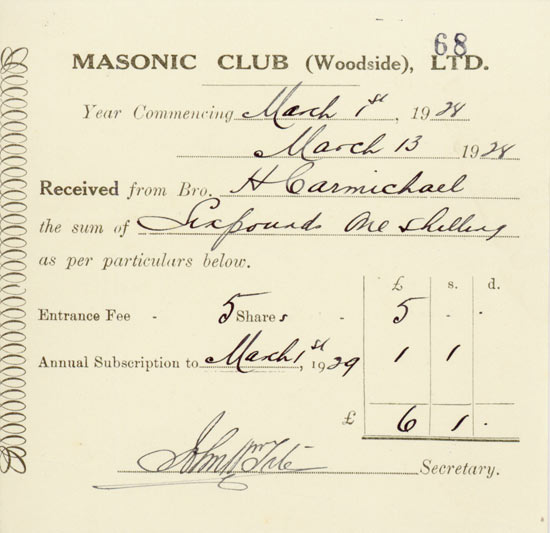 68
MASONIC CLUB (Woodside), LTD.
Year Commencing March 1st, 1928
March 13 1928
Received from Bro. H Carmichael
the sum of Six pounds One shilling
as per particulars below.
£ s. d.
Entrance Fee - 5 Shares - 5 - -
Annual Subscription to March 1st, 1929 1 1
£ 6 1 .
John Secretary.